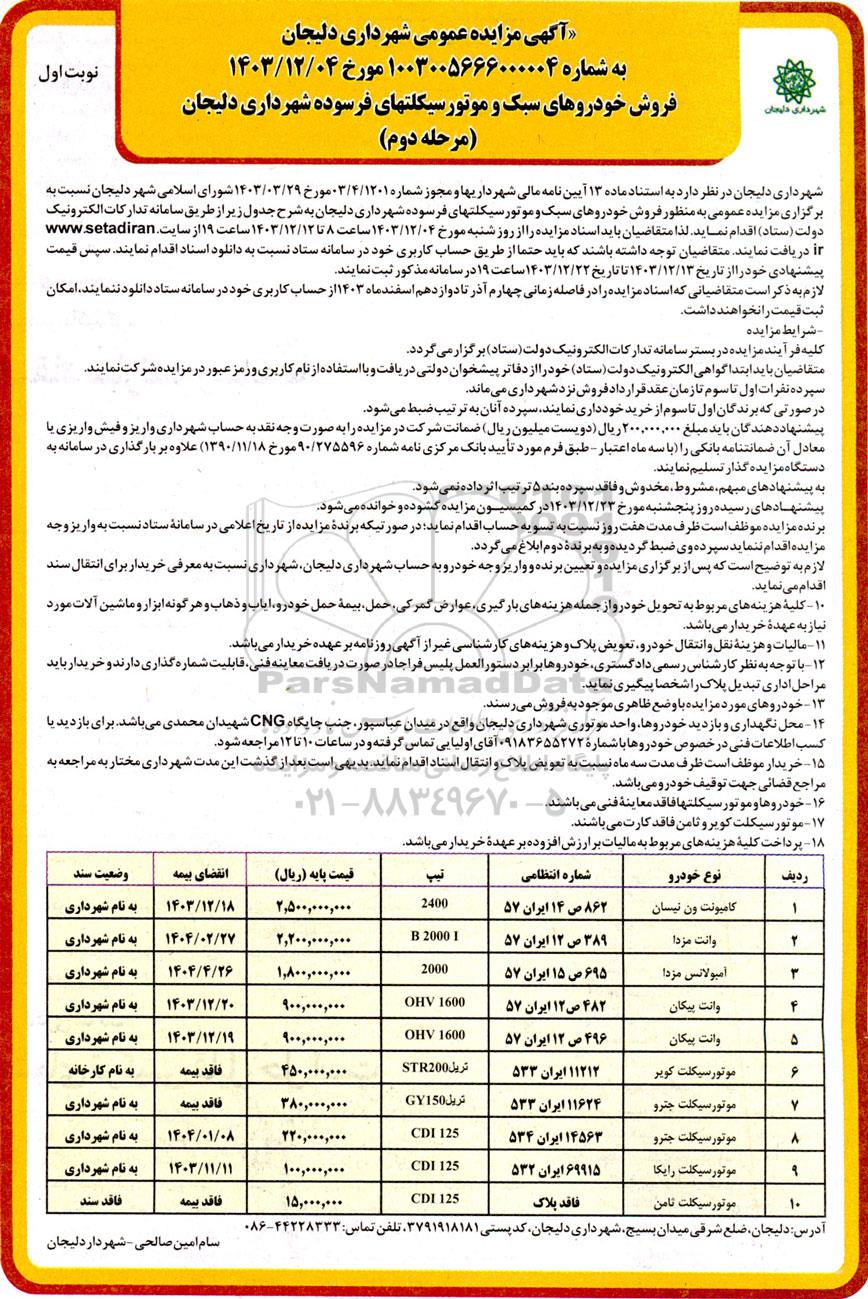 «آگهی مزایده عمومی شهرداری دلیجان
به شماره ۱۰۰۳۰۰۵۶۶۶۰۰۰۰۰۴ مورخ ۱۴۰۳/۱۲/۰۴
فروش خودروهای سبک و موتورسیکلتهای فرسوده شهرداری دلیجان
(مرحله دوم)
نوبت اول
شهرداری دلیجان
شهرداری دلیجان در نظر دارد به استناد ماده ۱۳ آیین نامه مالی شهرداریها و مجوز شماره ۰۳/۴/۱۲۰۱ مورخ ۱۴۰۳/۰۳/۲۹ شورای اسلامی شهر دلیجان نسبت به
برگزاری مزایده عمومی به منظور فروش خودروهای سبک و موتورسیکلتهای فرسوده شهرداری دلیجان به شرح جدول زیر از طریق سامانه تدارکات الکترونیک
دولت (ستاد) اقدام نمـاید. لذا متقاضیان باید اسناد مزایده را از روز شنبه مورخ ۱۴۰۳/۱۲/۰۴ ساعت ۸ تا ۱۴۰۳/۱۲/۱۲ ساعت ۱۹ از سایت www.setadiran.
ir دریافت نمایند. متقاضیان توجه داشته باشند که باید حتما از طریق حساب کاربری خود در سامانه ستاد نسبت به دانلود اسناد اقدام نمایند. سپس قیمت
پیشنهادی خود را از تاریخ ۱۴۰۳/۱۲/۱۳ تا تاریخ ۱۴۰۳/۱۲/۲۲ ساعت ۱۹ در سامانه مذکور ثبت نمایند.
لازم به ذکر است متقاضیانی که اسناد مزایده را در فاصله زمانی چهارم آذر تا دوازدهم اسفندماه ۱۴۰۳ از حساب کاربری خود در سامانه ستاد دانلود ننمایند، امکان
ثبت قیمت را نخواهند داشت.
-شرایط مزایده
کلیه فرآیند مزایده در بستر سامانه تدارکات الکترونیک دولت (ستاد) برگزار می گردد.
متقاضیان باید ابتدا گواهی الکترونیک دولت (ستاد) خود را از دفاتر پیشخوان دولتی دریافت و با استفاده از نام کاربری و رمز عبور در مزایده شرکت نمایند.
سپرده نفرات اول تا سوم تا زمان عقد قرارداد فروش نزد شهرداری می ماند.
در صورتی که برندگان اول تا سوم از خرید خودداری نمایند، سپرده آنان به ترتیب ضبط می شود.
پیشنهاددهندگان باید مبلغ ۲۰۰,۰۰۰,۰۰۰ ریال (دویست میلیون ریال) ضمانت شرکت در مزایده را به صورت وجه نقد به حساب شهرداری واریز و فیش واریزی یا
معادل آن ضمانتنامه بانکی را (با سه ماه اعتبار - طبق فرم مورد تأیید بانک مرکزی نامه شماره ۹۰/۲۷۵۵۹۶ مورخ ۱۳۹۰/۱۱/۱۸) علاوه بر بارگذاری در سامانه به
دستگاه مزایده گذار تسلیم نمایند.
به پیشنهادهای مبهم، مشروط، مخدوش و فاقد سپرده بند ۵ ترتیب اثر داده نمی شود.
پیشنهـادهای رسیده روز پنجشنبه مورخ ۱۴۰۳/۱۲/۲۳ در کمیسیـون مزایده گشوده و خوانده می شود.
برنده مزایده موظف است ظرف مدت هفت روز نسبت به تسویه حساب اقدام نماید؛ در صورتیکه برندۀ مزایده از تاریخ اعلامی در سامانۀ ستاد نسبت به واریز وجه
مزایده اقدام ننماید سپرده وی ضبط گردیده و به برندۀ دوم ابلاغ می گردد.
لازم به توضیح است که پس از برگزاری مزایده و تعیین برنده و واریز وجه خودرو به حساب شهرداری دلیجان، شهرداری نسبت به معرفی خریدار برای انتقال سند
اقدام می نماید.
۱۰-کلیۀ هزینه های مربوط به تحویل خودرو از جمله هزینه های بارگیری، عوارض گمرکی، حمل، بیمۀ حمل خودرو، ایاب و ذهاب و هرگونه ابزار و ماشین آلات مورد
نیاز به عهدۀ خریدار می باشد.
۱۱-مالیات و هزینۀ نقل و انتقال خودرو، تعویض پلاک و هزینه های کارشناسی غیر از آگهی روزنامه بر عهده خریدار می باشد.
۱۲-با توجه به نظر کارشناس رسمی دادگستری، خودروها برابر دستورالعمل پلیس فراجا در صورت دریافت معاینه فنی، قابلیت شماره گذاری دارند و خریدار باید
مراحل اداری تبدیل پلاک را شخصا پیگیری نماید.
۱۳-خودروهای مورد مزایده با وضع ظاهری موجود به فروش می رسند.
۱۴-محل نگهداری و بازدید خودروها، واحد موتوری شهرداری دلیجان واقع در میدان عباسپور، جنب جایگاه CNG شهیدان محمدی می باشد. برای بازدید یا
کسب اطلاعات فنی در خصوص خودروها با شمارۀ ۰۹۱۸۳۶۵۵۲۷۲ آقای اولیایی تماس گرفته و در ساعات ۱۰ تا ۱۲ مراجعه شود.
۱۵-خریدار موظف است ظرف مدت سه ماه نسبت به تعویض پلاک و انتقال اسناد اقدام نماید. بدیهی است بعد از گذشت این مدت شهرداری مختار به مراجعه به
مراجع قضائی جهت توقیف خودرو می باشد.
۱۶-خودروها و موتورسیکلتها فاقد معاینۀ فنی می باشند.
۱۷-موتورسیکلت کویر و ثامن فاقد کارت می باشند.
۱۸-پرداخت کلیۀ هزینه های مربوط به مالیات بر ارزش افزوده بر عهدۀ خریدار می باشد.
ParsNamadData
۰۲۱-۸۸۳۴۹۶۷۰-۵
ردیف نوع خودرو شماره انتظامی تیپ قیمت پایه (ریال) انقضای بیمه وضعیت سند
۱ کامیونت ون نیسان ۸۶۲ ص ۱۴ ایران ۵۷ 2400 ۲,۵۰۰,۰۰۰,۰۰۰ ۱۴۰۳/۱۲/۱۸ به نام شهرداری
۲ وانت مزدا ۳۸۹ ص ۱۲ ایران ۵۷ B 2000 I ۲,۲۰۰,۰۰۰,۰۰۰ ۱۴۰۴/۰۲/۲۷ به نام شهرداری
۳ آمبولانس مزدا ۶۹۵ ص ۱۵ ایران ۵۷ 2000 ۱,۸۰۰,۰۰۰,۰۰۰ ۱۴۰۴/۴/۲۶ به نام شهرداری
۴ وانت پیکان ۴۸۲ ص۱۲ ایران ۵۷ OHV 1600 ۹۰۰,۰۰۰,۰۰۰ ۱۴۰۳/۱۲/۲۰ به نام شهرداری
۵ وانت پیکان ۴۹۶ ص ۱۲ ایران ۵۷ OHV 1600 ۹۰۰,۰۰۰,۰۰۰ ۱۴۰۳/۱۲/۱۹ به نام شهرداری
۶ موتورسیکلت کویر ۱۱۲۱۲ ایران ۵۳۳ تریلSTR200 ۴۵۰,۰۰۰,۰۰۰ فاقد بیمه به نام کارخانه
۷ موتورسیکلت جترو ۱۱۶۲۴ ایران ۵۳۳ تریلGY150 ۳۸۰,۰۰۰,۰۰۰ فاقد بیمه به نام شهرداری
۸ موتورسیکلت جترو ۱۴۵۶۳ ایران ۵۳۴ CDI 125 ۲۲۰,۰۰۰,۰۰۰ ۱۴۰۴/۰۱/۰۸ به نام شهرداری
۹ موتورسیکلت رایکا ۶۹۹۱۵ ایران ۵۳۲ CDI 125 ۱۰۰,۰۰۰,۰۰۰ ۱۴۰۳/۱۱/۱۱ به نام شهرداری
۱۰ موتورسیکلت ثامن فاقد پلاک CDI 125 ۱۵,۰۰۰,۰۰۰ فاقد بیمه فاقد سند
آدرس: دلیجان، ضلع شرقی میدان بسیج، شهرداری دلیجان، کدپستی ۳۷۹۱۹۱۸۱۸۱، تلفن تماس: ۴۴۲۲۸۳۳۳-۰۸۶
سام امین صالحی - شهردار دلیجان